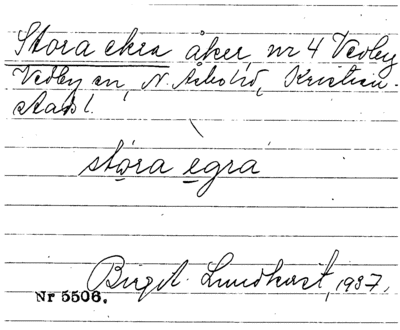 Stora ekra åker, nr 4 Vedby
Vedby sn, N. Åsbo hd, Kristian-
stads l.
stóra ẹgra
Birgit Lundkvist, 1937.
Nr 5506.